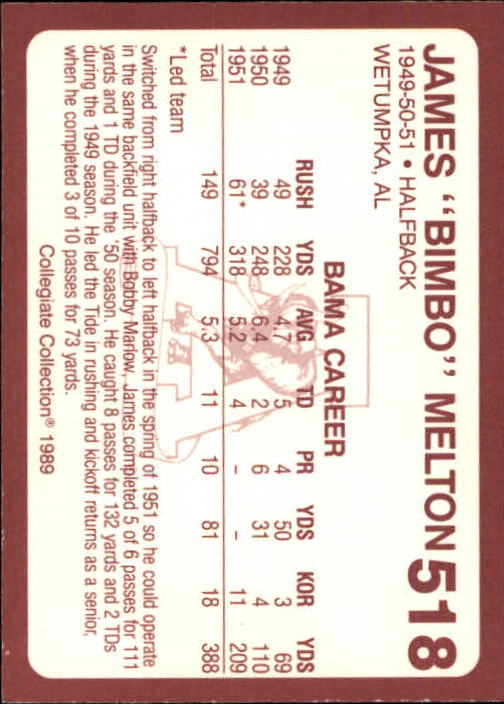 JAMES "BIMBO" MELTON 518
1949-50-51 • HALFBACK
WETUMPKA, AL
BAMA CAREER
RUSH YDS AVG TD PR YDS KOR YDS
1949 49 228 4.7 5 4 50 3 69
1950 39 248 6.4 2 6 31 4 110
1951 61* 318 5.2 4 - - 11 209
Total 149 794 5.3 11 10 81 18 388
*Led team
Switched from right halfback to left halfback in the spring of 1951 so he could operate
in the same backfield unit with Bobby Marlow, James completed 5 of 6 passes for 111
yards and 1 TD during the '50 season. He caught 8 passes for 132 yards and 2 TDs
during the 1949 season. He led the Tide in rushing and kickoff returns as a senior,
when he completed 3 of 10 passes for 73 yards.
Collegiate Collection® 1989